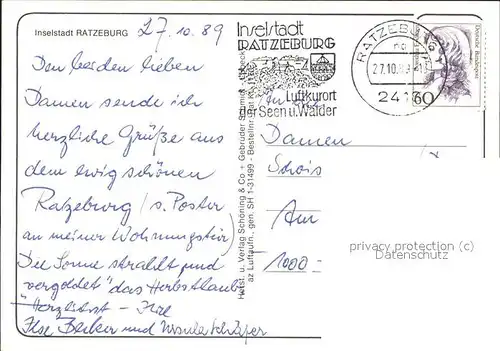 Inselstadt RATZEBURG
27.10.89
Den beiden lieben
Damen sende ich
herzliche Grüße aus
dem ewig schönen
Ratzeburg (s. Poster
an meiner Wohnungstür)
Die Sonne strahlt und
vergoldet "das Herbstlaub
"Herzlichst - Ihre
Ilse Becker und Ursula
Inselstadt
RATZEBURG
Luftkurort
der Seen u. Wälder
RATZEBURG 1
27.10.89
2418
60
Deutsche Bundespost
Herst. u. Verlag Schöning & Co + Gebrüder Schmidt
gen. SH 1-31499
An
Damen
Am
1000
privacy protection (c)
Datenschutz